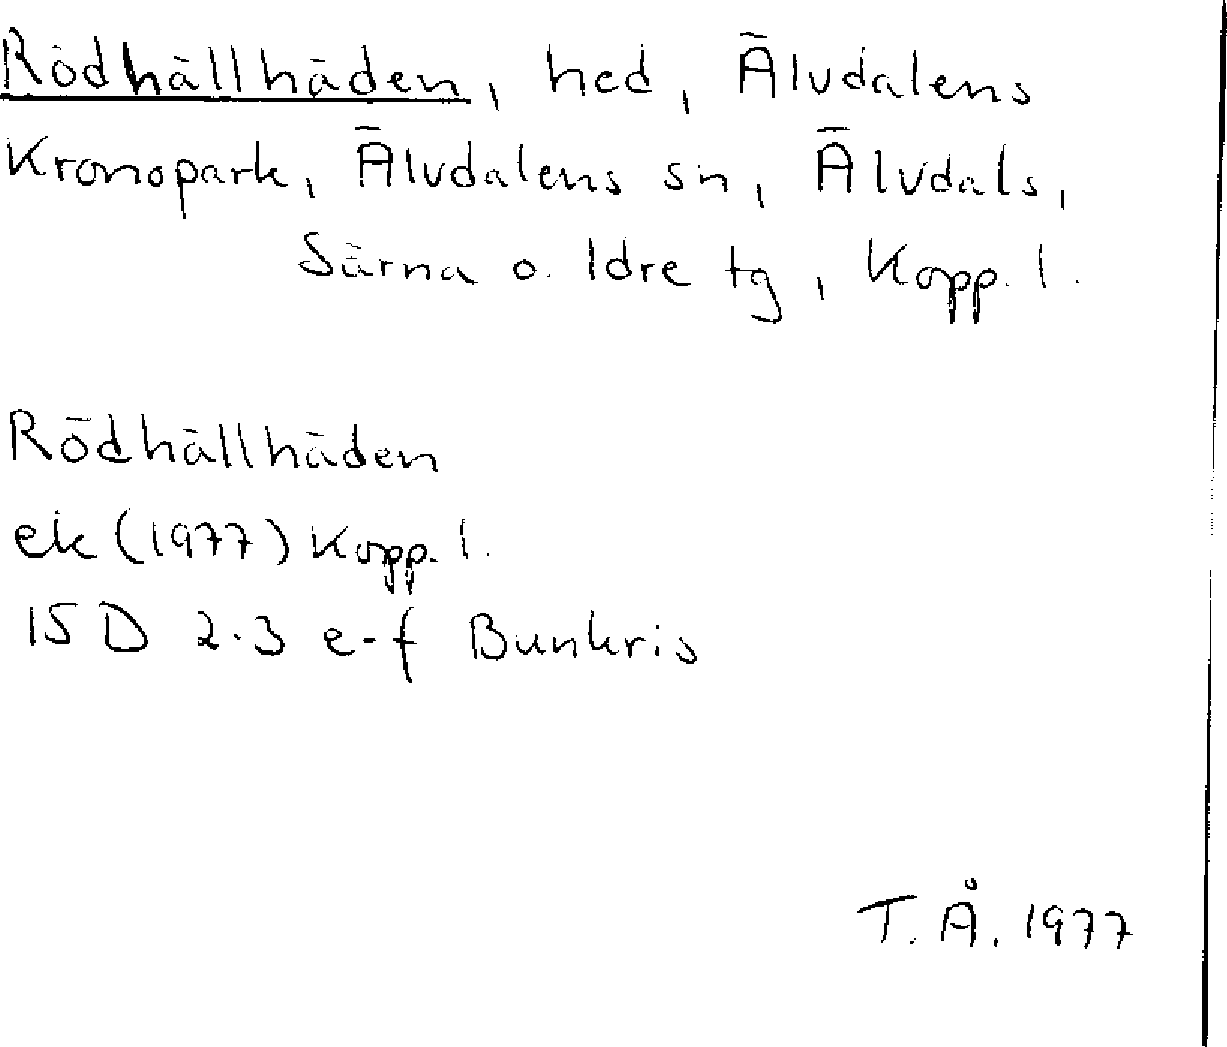 Rödhällhäden, hed, Älvdalens
Kronopark, Älvdalens sn, Älvdals,
Särna o. Idre tg, Kopp. l.
Rödhällhäden
ek (1977) Kopp. l.
15 D 2-3 e-f Bunkris
T. Å. 1977